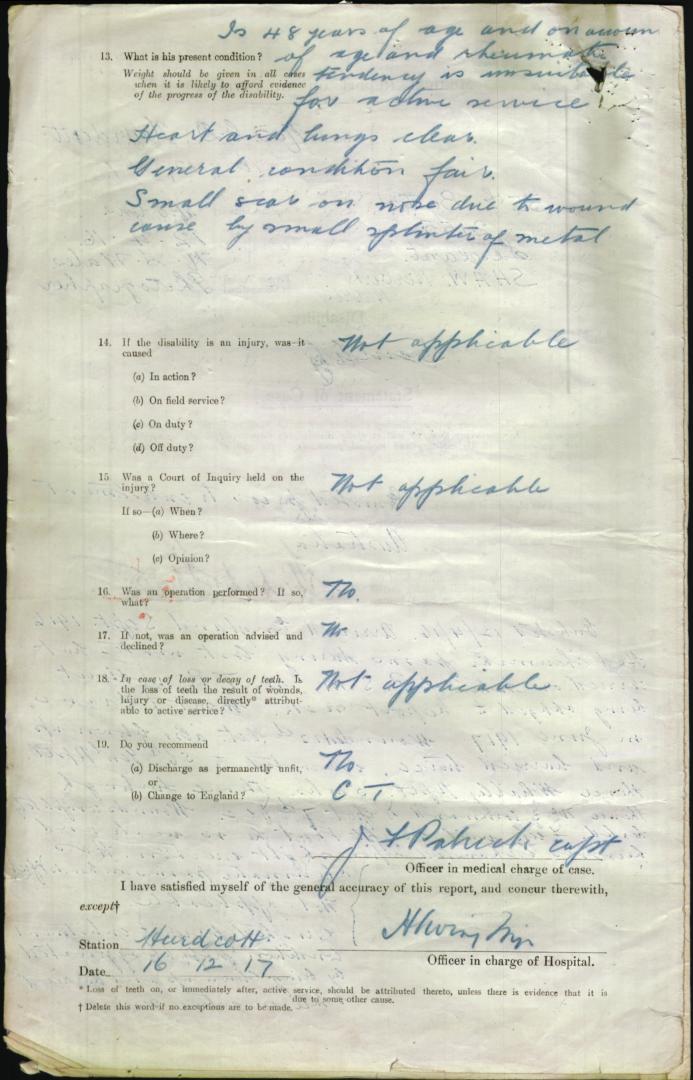 Is 48 years of age and on account
13. What is his present condition? of age and rheumatic
Weight should be given in all cases tendency is unsuitable
when it is likely to afford evidence
of the progress of the disability. for active service
Heart and lungs clear.
General condition fair.
Small scar on nose due to wound
cause by small splinter of metal
14. If the disability is an injury, was it Not applicable
caused
(a) In action?
(b) On field service?
(c) On duty?
(d) Off duty?
15 Was a Court of Inquiry held on the Not applicable
injury?
If so—(a) When?
(b) Where?
(c) Opinion?
16. Was an operation performed? If so, No.
what?
17. If not, was an operation advised and No
declined?
18. In case of loss or decay of teeth. Is Not applicable
the loss of teeth the result of wounds,
injury or disease, directly* attribut-
able to active service?
19. Do you recommend
(a) Discharge as permanently unfit, No.
or
(b) Change to England? C T
Capt
Officer in medical charge of case.
I have satisfied myself of the general accuracy of this report, and concur therewith,
except†
Station Hurdcott
Officer in charge of Hospital.
Date 16 12 17
* Loss of teeth on, or immediately after, active service, should be attributed thereto, unless there is evidence that it is
due to some other cause.
† Delete this word if no exceptions are to be made.